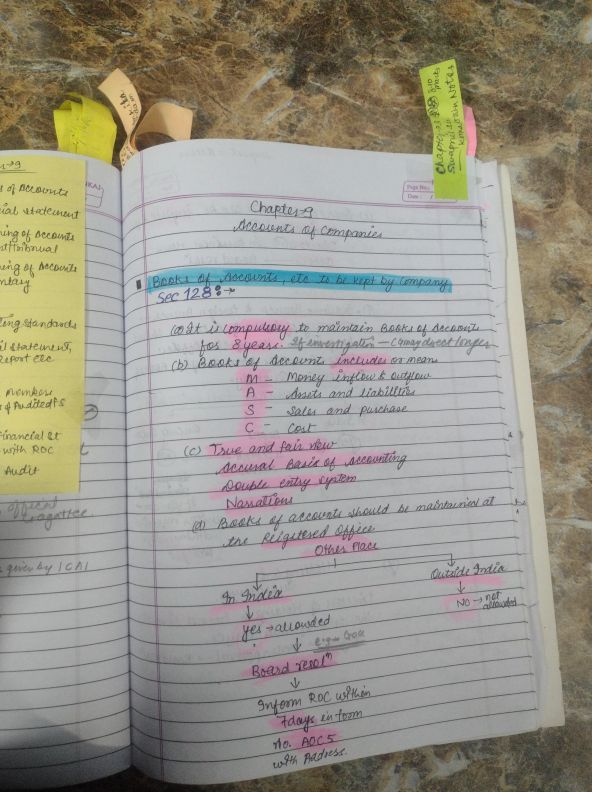 Chapter-9
Accounts of Companies
Books of Accounts, etc to be kept by Company
Sec 128:→
(a) It is compulsory to maintain Books of Accounts
for 8 years. If investigation – CG may direct longer
(b) Books of Account includes or mean
M - Money inflow & outflow
A - Assets and liabilities
S - Sales and purchase
C - Cost
(c) True and fair view
Accural Basis of Accounting
Double entry system
Narrations
(d) Books of accounts should be maintained at
the Reigstered Office
Other Place
In India
Outside India
yes → allowded
NO → not
allowded
Board resolⁿ
Inform ROC within
7days in form
No. AOC 5
with Address.
Page No.:
Date: /
Notes
s of Accounts
cial statement
ning of Accounts
ning of Accounts
ntary
ting standards
al statement,
Report etc
Members
of Audited FS
Financial St
with ROC
Audit
official
given by ICAI